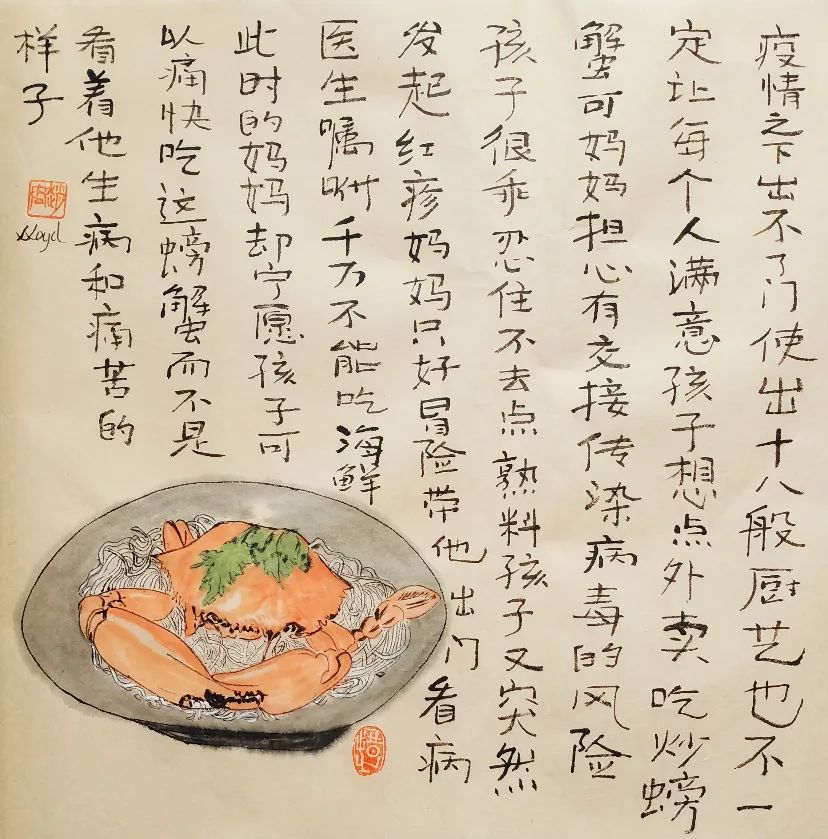 疫情之下出不了门使出十八般厨艺也不一
定让每个人满意孩子想点外卖吃炒螃
蟹可妈妈担心有交接传染病毒的风险
孩子很乖忍住不去点熟料孩子又突然
发起红疹妈妈只好冒险带他出门看病
医生嘱咐千万不能吃海鲜
此时的妈妈却宁愿孩子可
以痛快吃这螃蟹而不是
看着他生病和痛苦的
样子
Lloyd